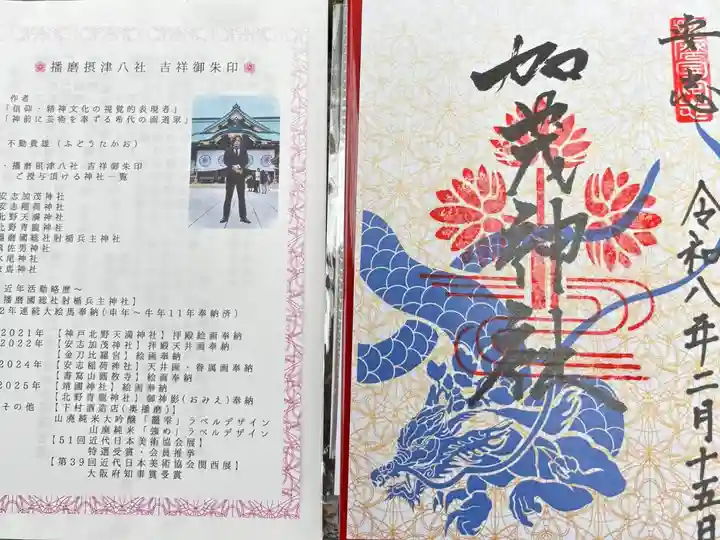 播磨摂津八社 吉祥御朱印
作者
「信仰・精神文化の視覚的表現者」
「神前に芸術を奉ずる希代の画道家」
不動貴雄(ふどうたかお)
・播磨摂津八社 吉祥御朱印
ご授与頂ける神社一覧
安志加茂神社
安志稲荷神社
北野天満神社
北野青龍神社
播磨國総社射楯兵主神社
佐男神社
水尾神社
馬神社
近年活動略歴~
播磨國総社射楯兵主神社】
2年連続大絵馬奉納(申年~牛年11年奉納済)
2021年 【神戸北野天満神社】拝殿絵画奉納
2022年 【安志加茂神社】拝殿天井画奉納
【金刀比羅宮】絵画奉納
2024年 【安志稲荷神社】天井画・眷属画奉納
【書寫山圓教寺】絵画奉納
2025年 【靖國神社】絵画奉納
【北野青龍神社】御神影(おみえ)奉納
その他 【下村酒造店(奥播磨)】
山廃純米大吟醸「龍奉」ラベルデザイン
山廃純米「強め」ラベルデザイン
【51回近代日本美術協会展】
特選受賞・会員推挙
【第39回近代日本美術協会関西展】
大阪府知事賞受賞
安志
加茂神社
令和八年二月十五日